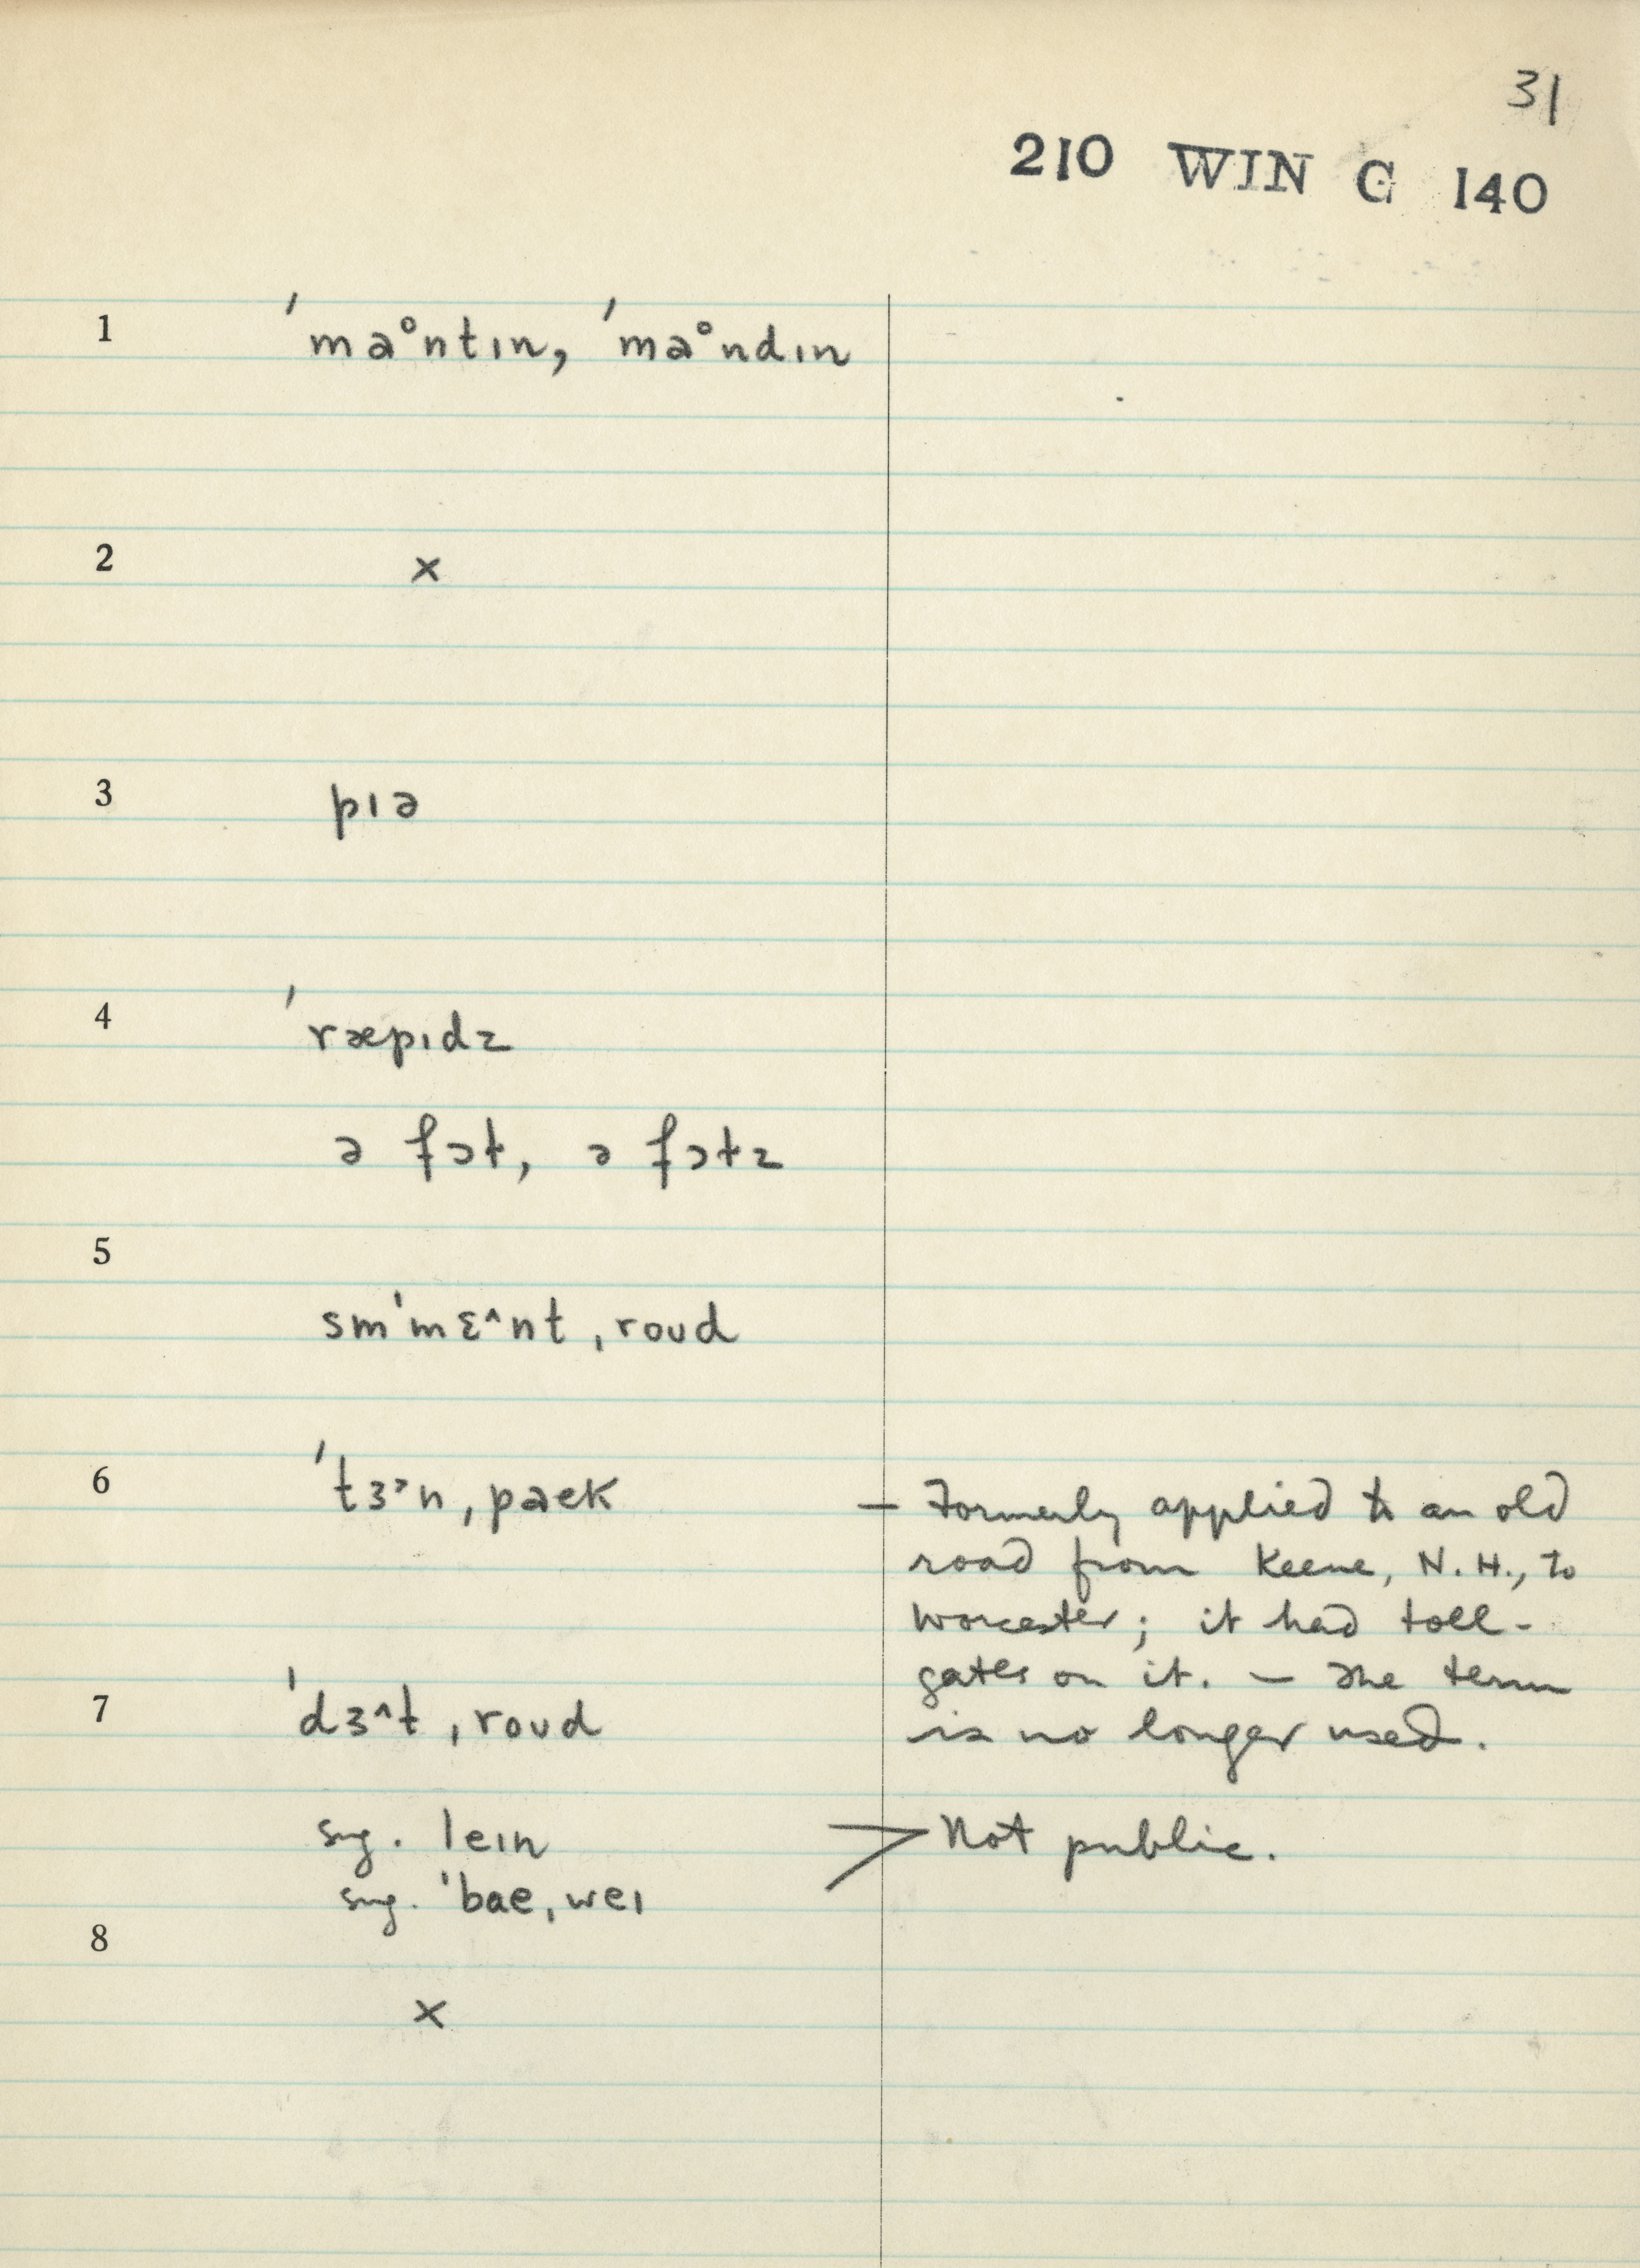 31
210 WIN C 140
1 ˈmaᵒntɪn, ˈmaᵒndɪn
2 ×
3 pɪə
4 ˈræpɪdz
ə fɔt, ə fɔtz
5
smˈmɛ^nt ˌroud
6 ˈtɜ˃n ˌpaek — Formerly applied to an old
road from Keene, N.H., to
Worcester; it had toll-
gates on it. — The term
7 ˈdɜ^t ˌroud is no longer used.
sug. leɪn > Not public.
sug. ˈbae ˌweɪ
8
×